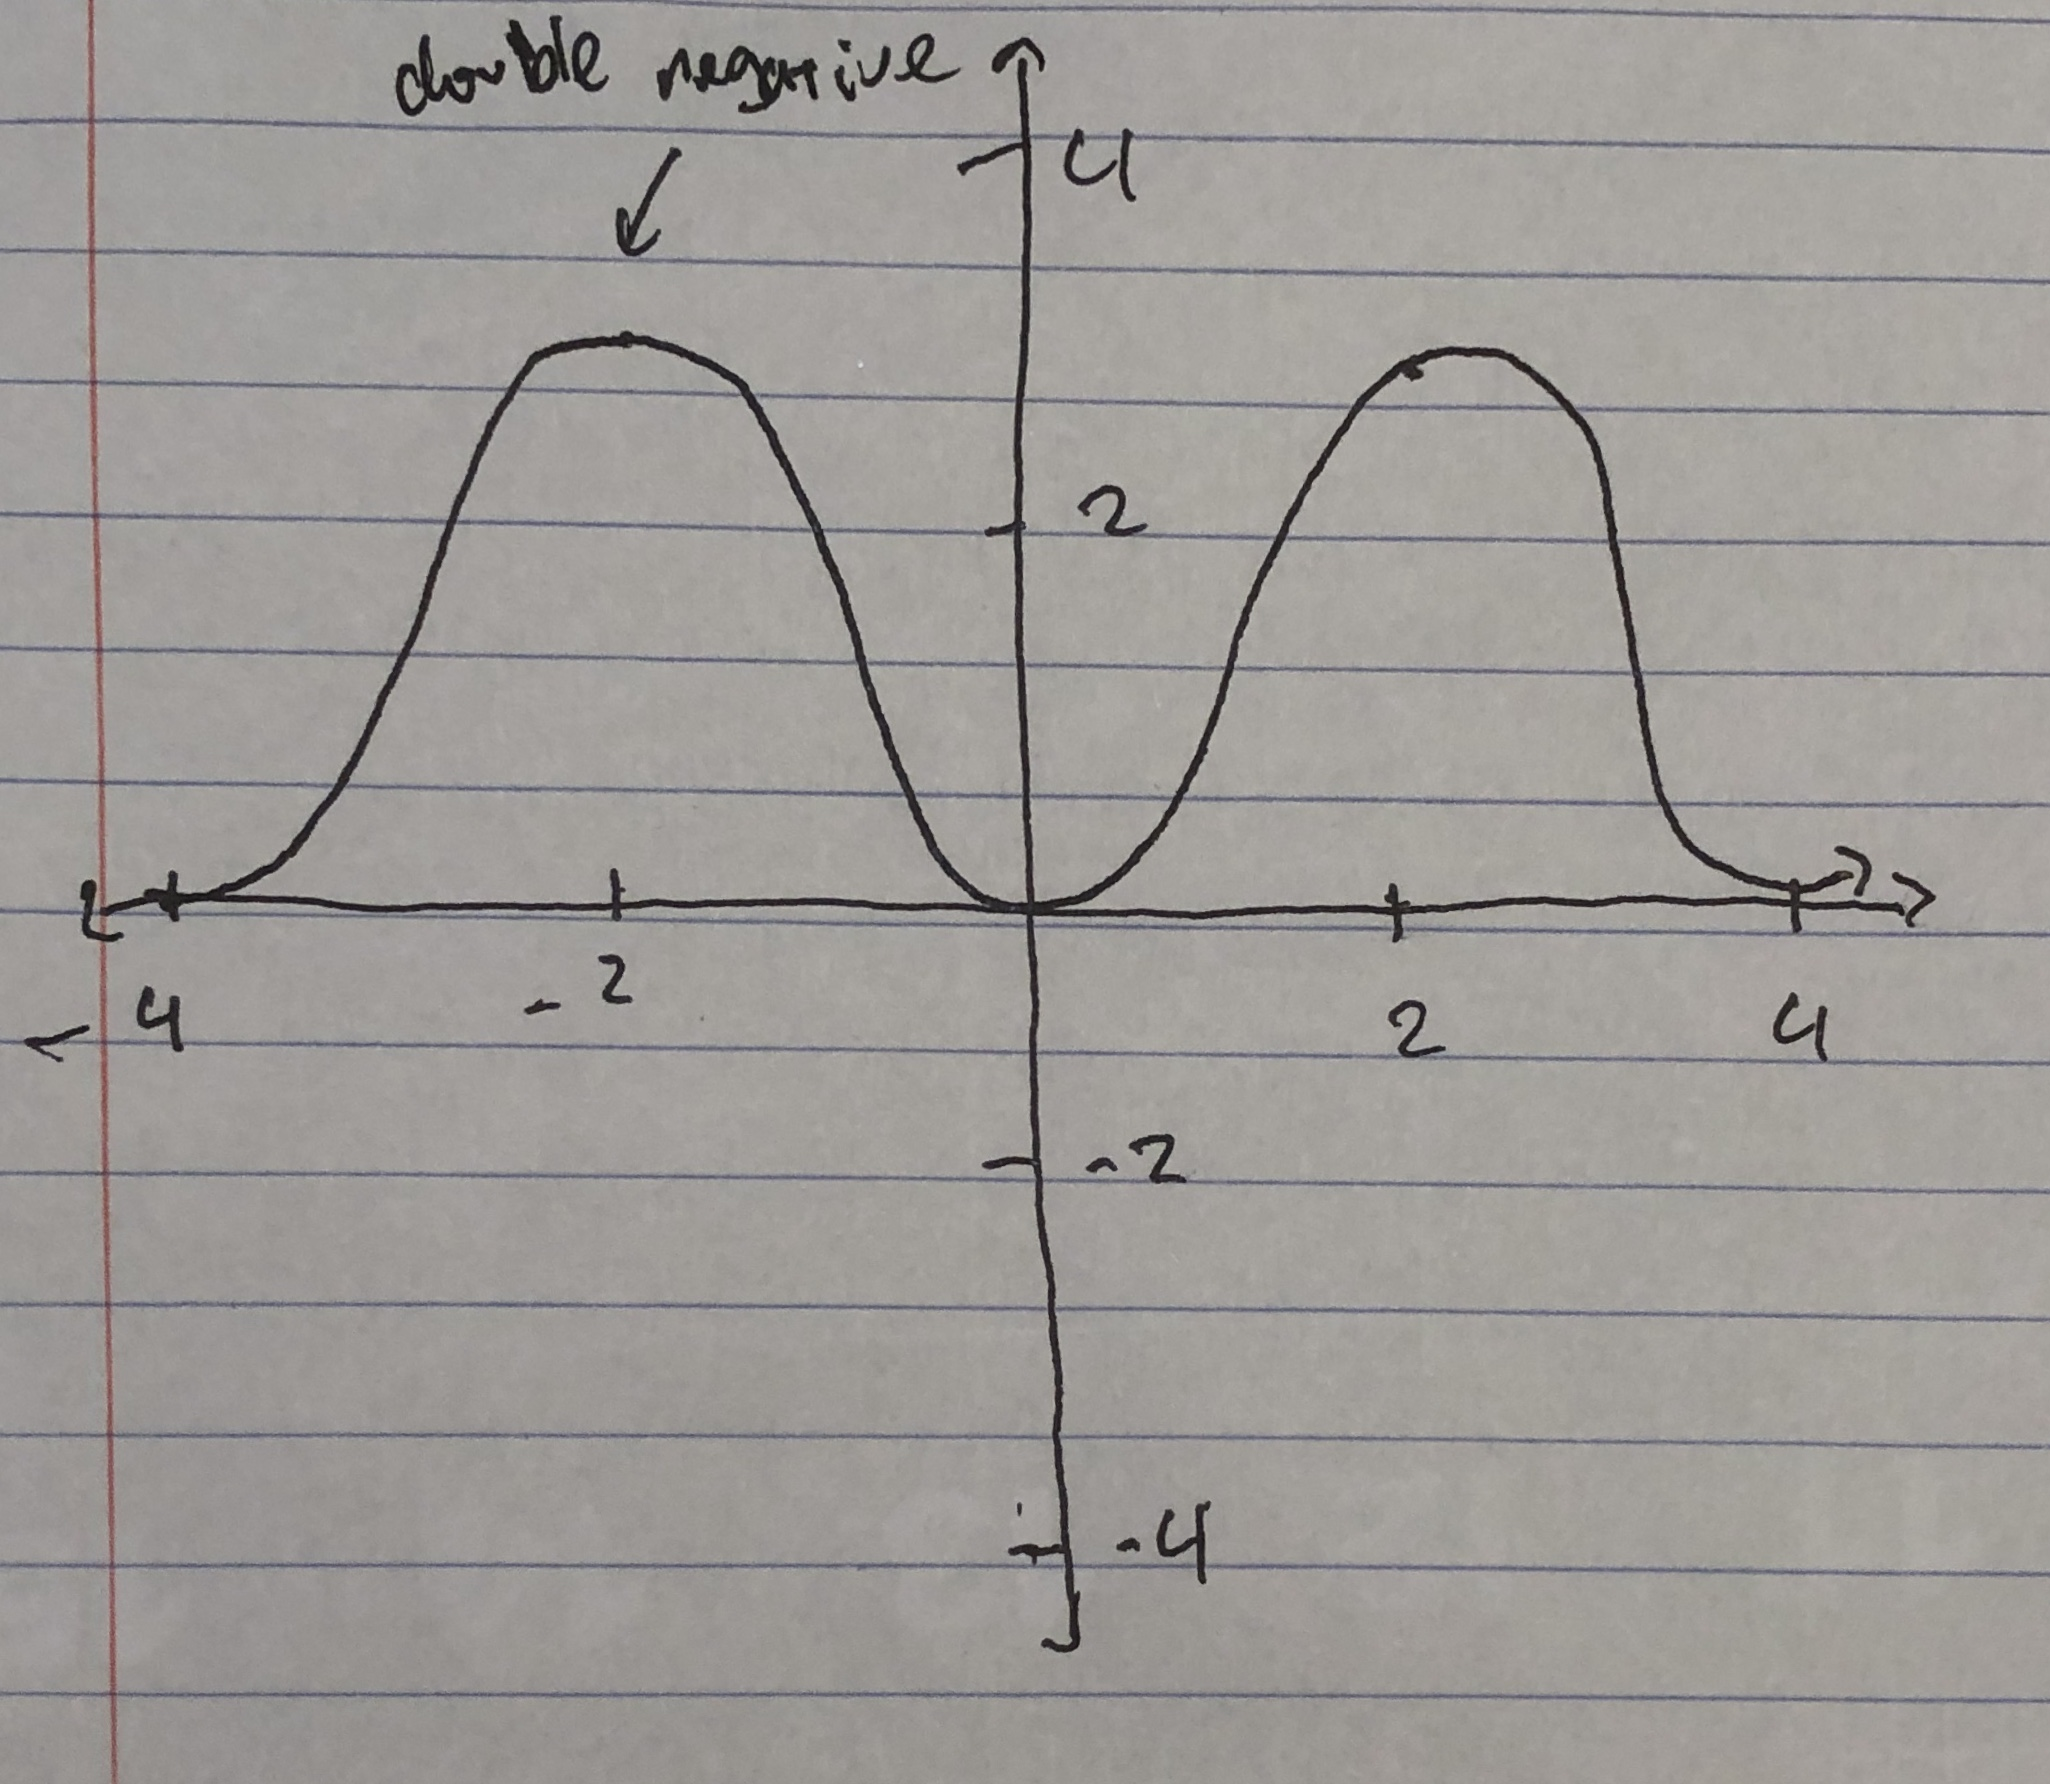 double negative
4
2
-4 -2 2 4
-2
-4